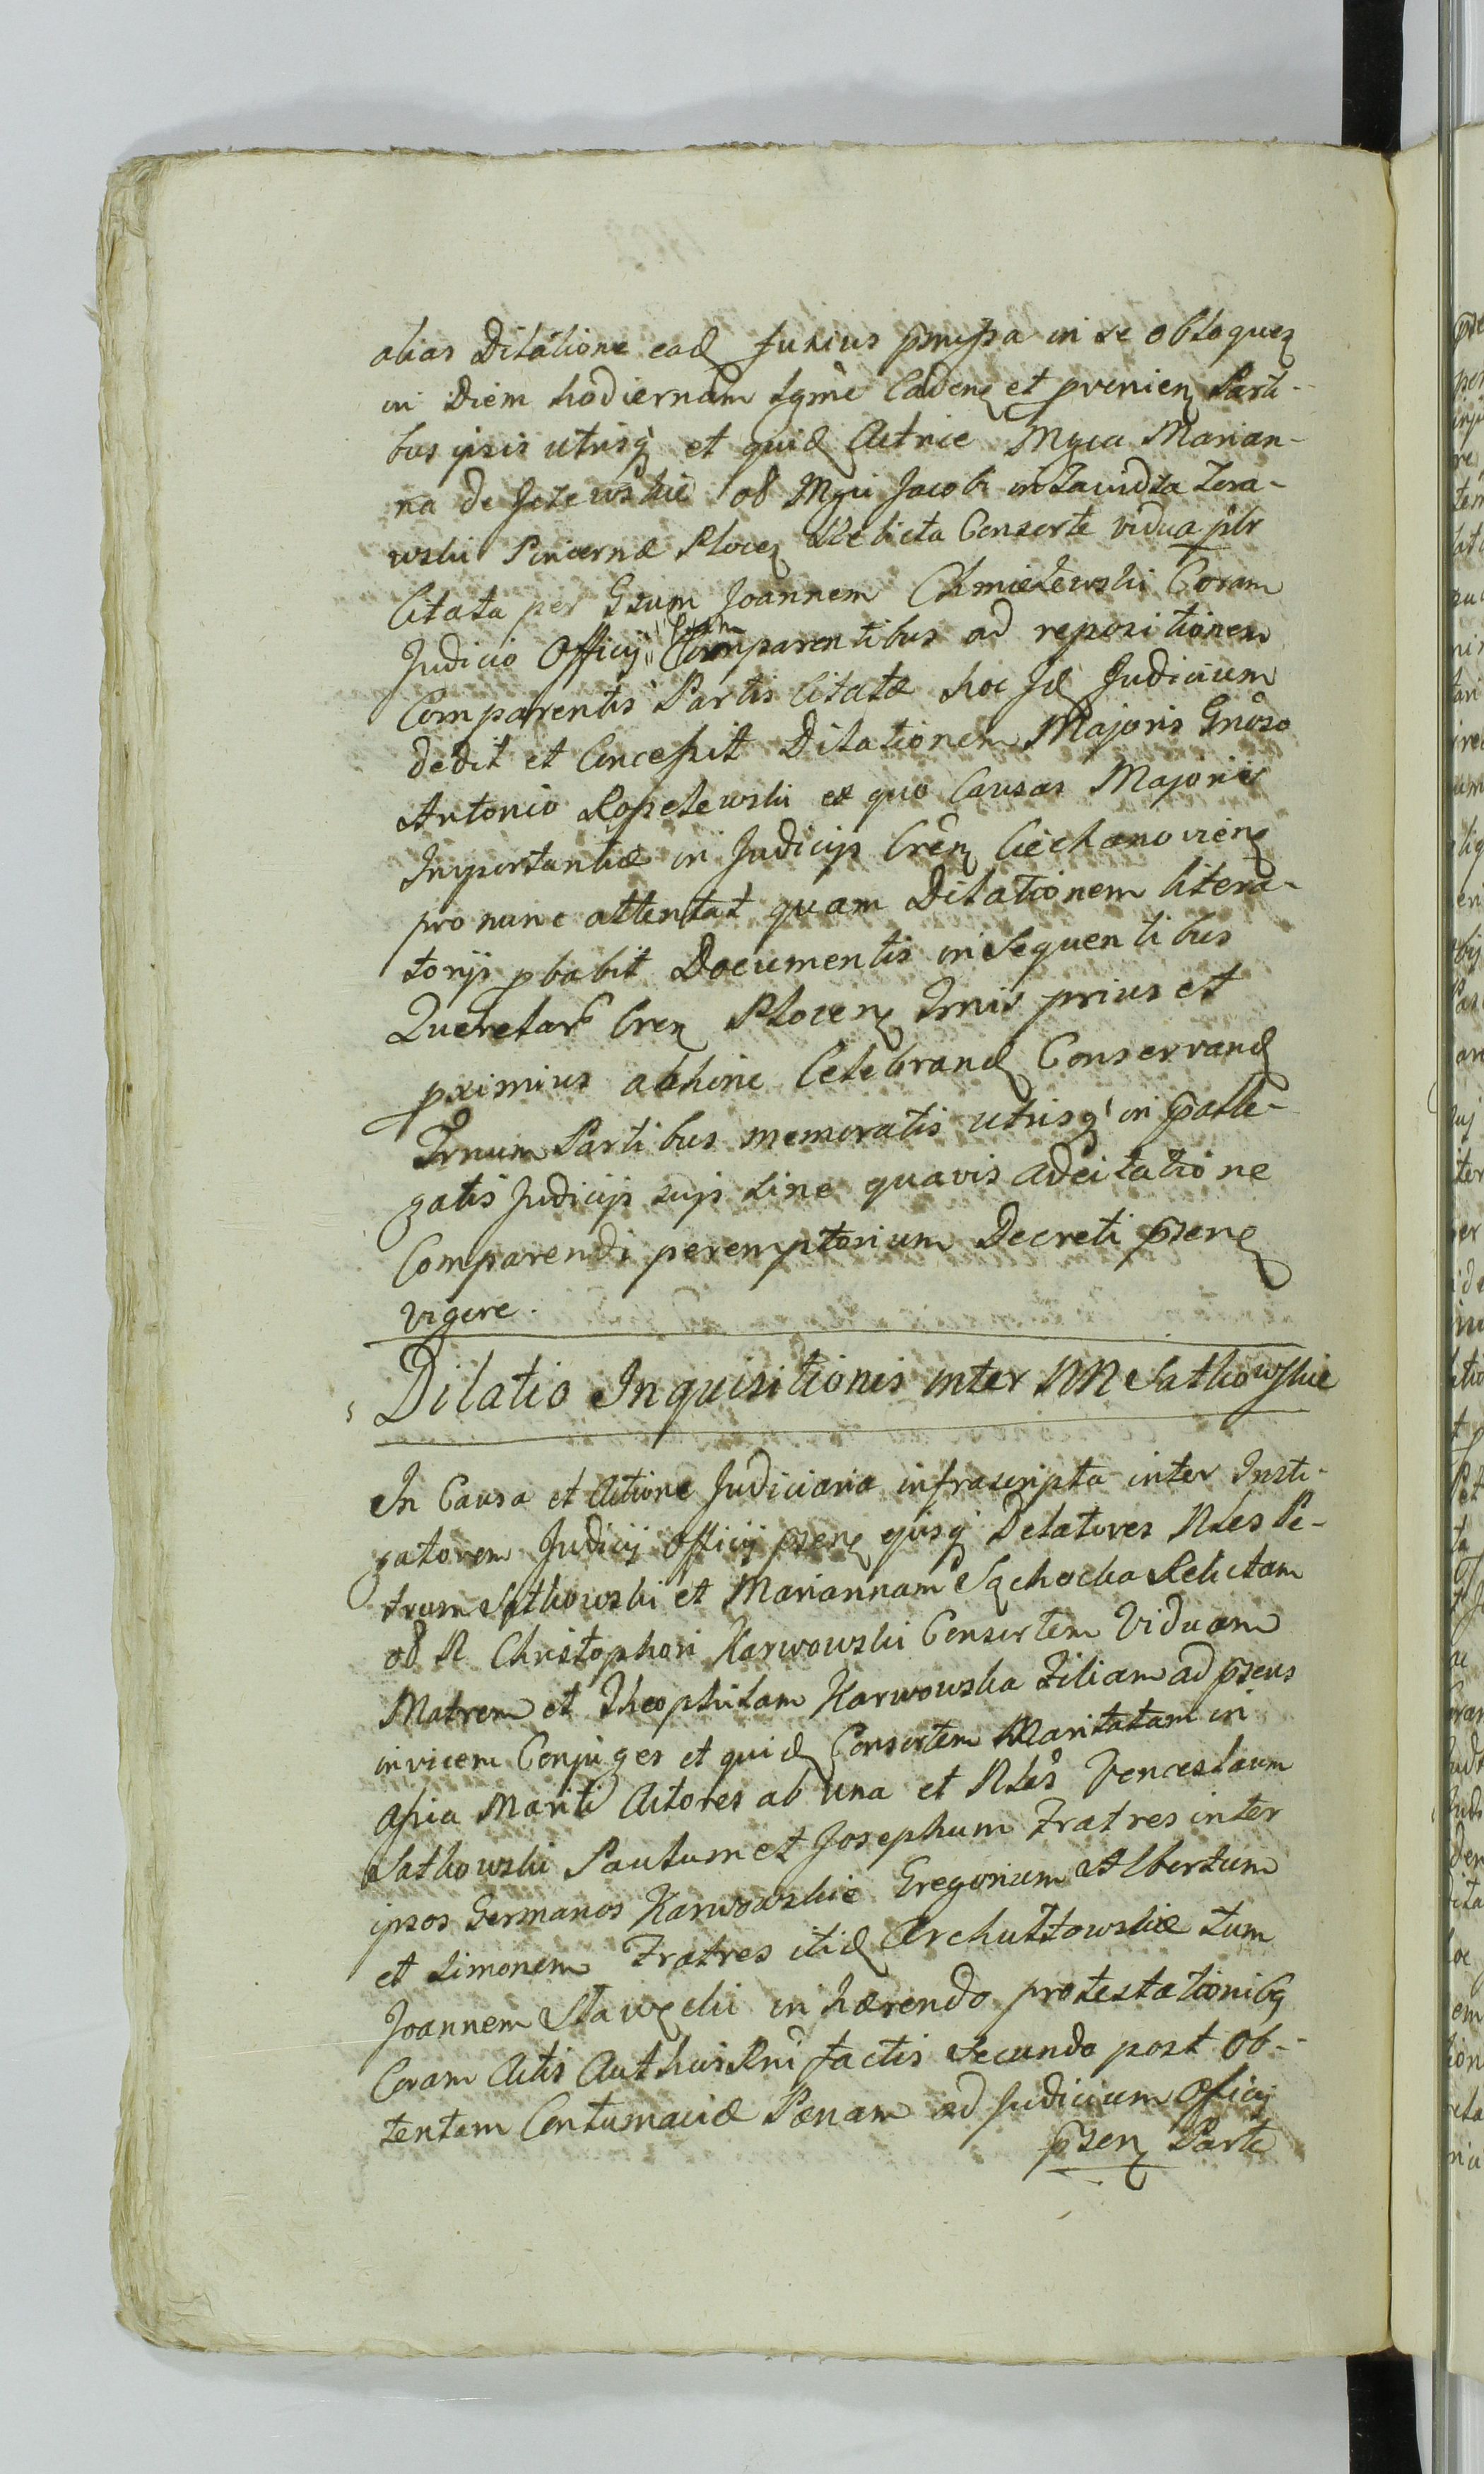 alias Dilatione ead fusius in se obloquen
in Diem hodiernam Lgme Caden et pvenien Parti-
bus ipsis utrisq et quid Actrice Mgca Marian-
na de Jezewskie ob Mgci Jacobi in Zawidza Zura-
wski Pincernæ Plocen Relicta Consorte vidua plr
Citata per Gsum Joannem Chmielewski Coram
Judicio Officij Comparentibus ad repositionem
Comparentis Partis Citatæ hoc Jd Judicium
dedit et Concessit Dilationem Majoris Gnoso
Antonio Ropelewski ex quo Causas Majoris
Importantiæ in Judicijs Cren Ciechanovien
pro nunc attentat quam Dilationem litera-
torijs pbabit Documentis in Sequentibus
Querelar Cren Plocen Trnis prius et
pximius abhinc Celebrand Conservand
Trnum Partibus memoratis utrisq in palle-
gatis Judicijs suis sine quavis adcitatione
Comparendi peremptorium Decreti psen
vigore.
Dilatio Inquisitionis inter NN Sutkowskie
In Causa et Actione Judiciaria infrascripta inter Insti-
gatorem Judicij Officij psen ejusq Delatores Nles Pe-
trum Sutkowski et Mariannam Relictam
ob N Christophori Karwowski Consortem Viduam
Matrem et Theophilam Karwowska Filiam ad psens
invicem Conjuges et quid Consortem Maritatam in
Assia Mariti Actores ab una et Nles Venceslaum
Sutkowski Paulum et Josephum Fratres inter
ipsos Germanos Karwowskie Gregorium Albertum
et Simonem Fratres itid Archutowskie tum
Joannem in hærendo protestationibq
Coram Actis Authen Rni factis Secundo post Ob-
tentam Contumaciæ Pænam ad Judicium Officij
psen Parte